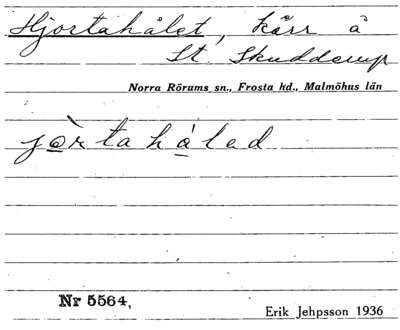 Hjortahålet, kärr å
St. Skudderup
Norra Rörums sn., Frosta hd., Malmöhus län
jòrtahålad
Nr 5564,
Erik Jehpsson 1936